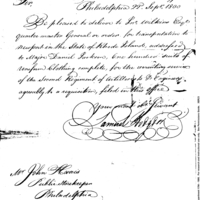 Sir,
Philadelphia 9th Sept. 1800
Be pleased to deliver to
quarter master General or order, for transportation to
Newport in the State of Rhode Island, addressed
to Major Daniel Jackson, one hundred suits of
uniform Clothing complete, for the recruiting service
of the Second Regiment of Artillerists & Engineers
agreeably to a requisition, filed in this office
Your obedt Servant
Samuel Hodgdon
Mr. John Harris
Public Storekeeper
Philadelphia